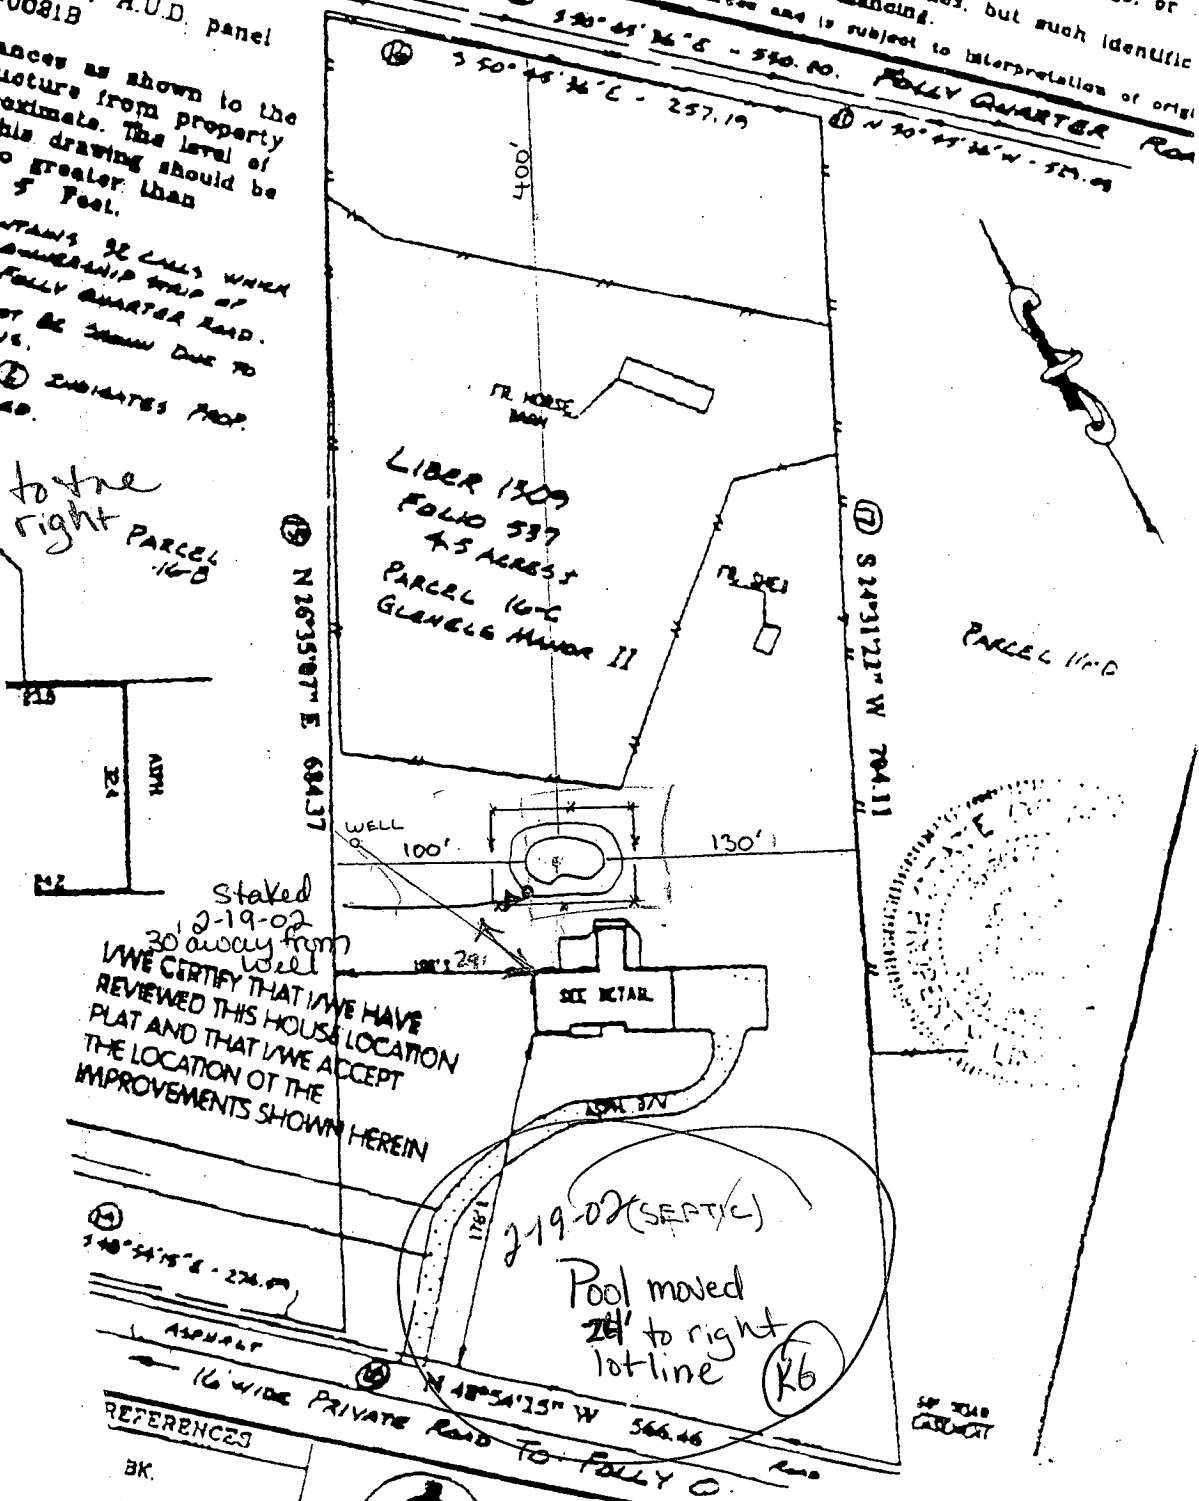 H.U.D. panel
00818
ances as shown to the
ucture from property
oximate. The level of
his drawing should be
o greater than
5 Feet.
NTAINS 92 CALLS WHICH
OWNERSHIP STRIP OF
FOLLY QUARTER ROAD.
OT BE SHOWN DUE TO
INDICATES PROP.
but such identific
ancing.
and is subject to interpretation of origi
S 50° 45' 36" E - 550.80.
FOLLY QUARTER ROA
S 50° 45' 36" E - 257.19
N 50° 45' 36" W - 529.09
16
11
400'
FR. HORSE
BARN
LIBER 1309
FOLIO 537
4.5 ACRES ±
PARCEL 16-C
GLENELG MANOR II
to the
right
PARCEL
16-B
15
N 26°35'07" E 684.37
17
S 24°31'22" W 704.11
FR. SHED
PARCEL 11-D
ASPH
32.4
WELL
100'
130'
Staked
2-19-02
30' away from
well
29'
I/WE CERTIFY THAT I/WE HAVE
REVIEWED THIS HOUSE LOCATION
PLAT AND THAT I/WE ACCEPT
THE LOCATION OT THE
IMPROVEMENTS SHOWN HEREIN
SEE DETAIL
178'±
2-19-02 (SEPTIC)
Pool moved
24' to right
lot line
KG
14
S 48° 54' 15" E - 276.09
ASPHALT
16
N 48°54'15" W 566.46
16' WIDE PRIVATE ROAD TO FOLLY Q.
ROAD
REFERENCES
BK.